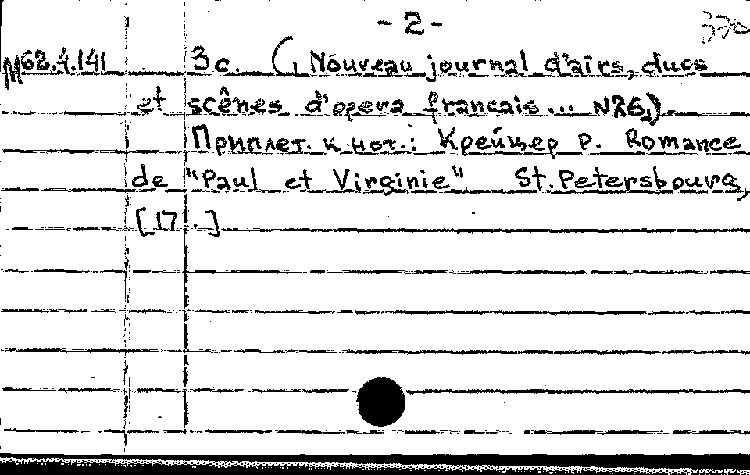 - 2 -
370
M62.4.141 3с. (Nouveau journal d'airs, ducs
et scènes d'opera francais... N26).
Приплет. к нот.: Крейцер Р. Romance
de "Paul et Virginie" St. Petersbourg,
[17 . ]